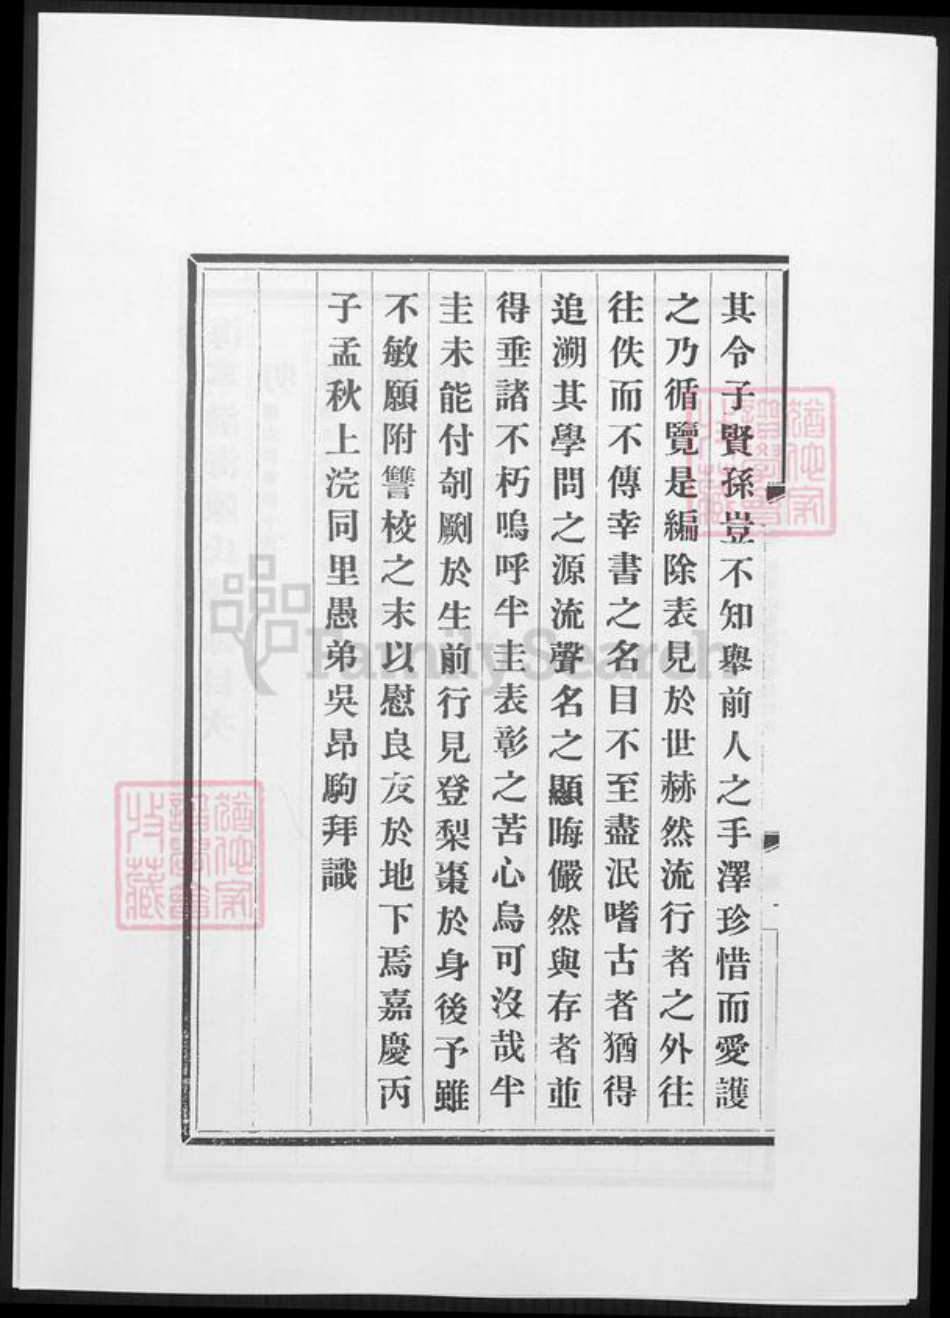 其令子賢孫豈不知舉前人之手澤珍惜而愛護
之乃循覽是編除表見於世赫然流行者之外往
往佚而不傳幸書之名目不至盡泯嗜古者猶得
追溯其學問之源流聲名之顯晦儼然與存者並
得垂諸不朽嗚呼半圭表彰之苦心烏可沒哉半
圭未能付剞劂於生前行見登梨棗於身後予雖
不敏願附讐校之末以慰良友於地下焉嘉慶丙
子孟秋上浣同里愚弟吳昂駒拜識
FamilySearch